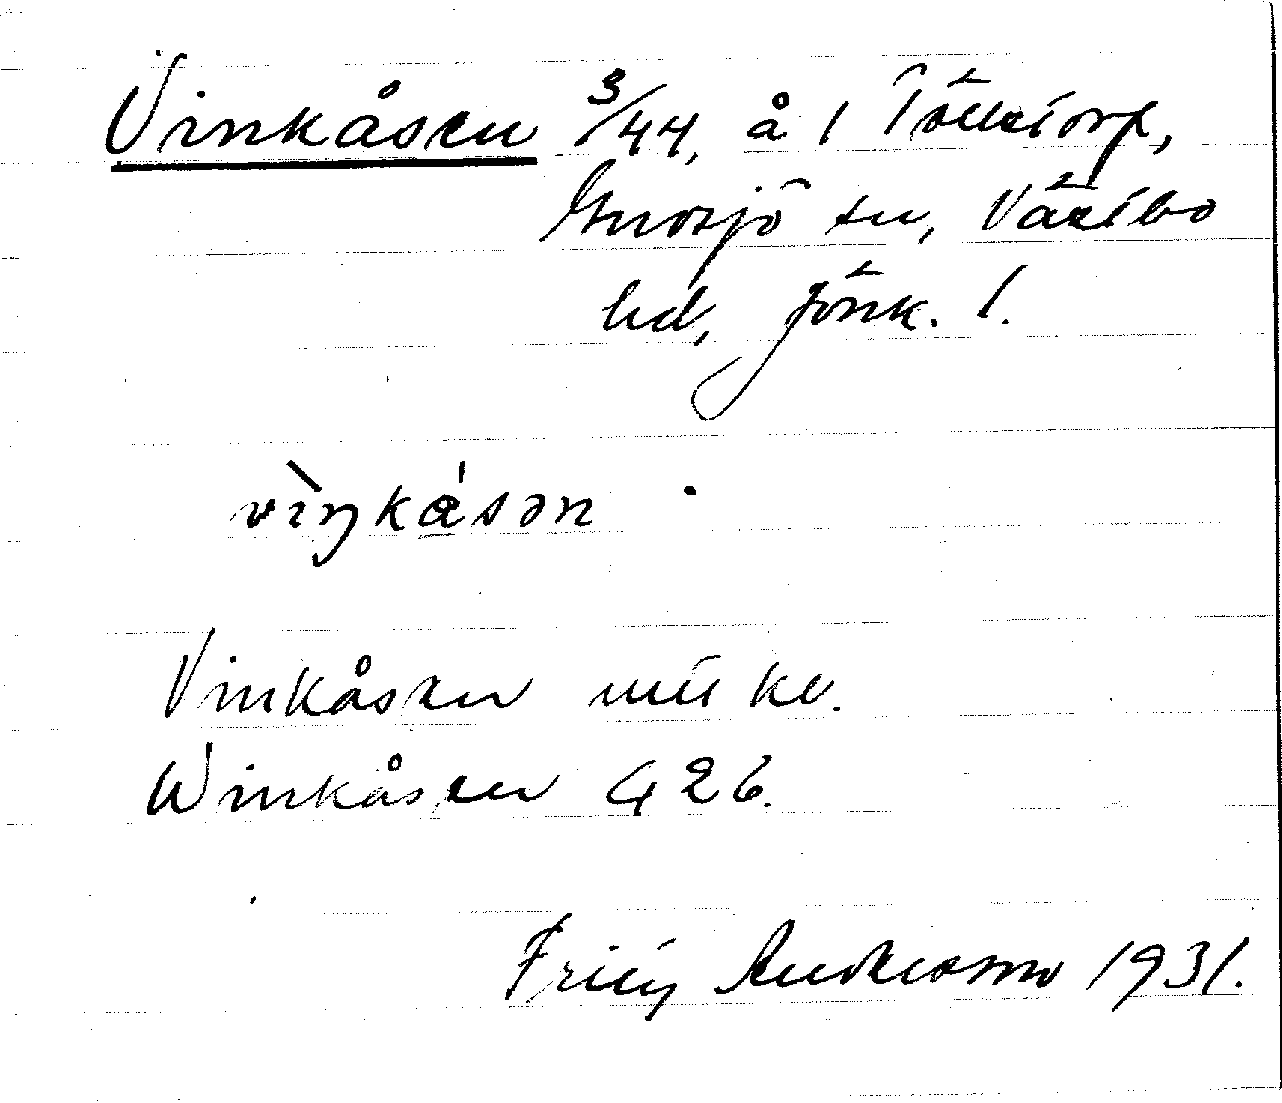 Vinkåsen 3/44, å 1 Töllstorp,
Gnosjö sn, Västbo
hd, Jönk. l.
vìŋkásən
Vinkåsen kv.
Winkåsen G 26.
Fritz Andersson 1931.